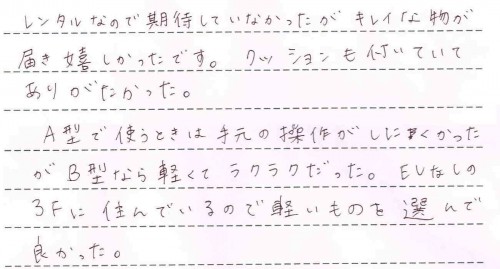 レンタルなので期待していなかったがキレイな物が
届き嬉しかったです。クッションも付いていて
ありがたかった。
A型で使うときは手元の操作がしにくかった
がB型なら軽くてラクラクだった。EVなしの
3Fに住んでいるので軽いものを選んで
良かった。